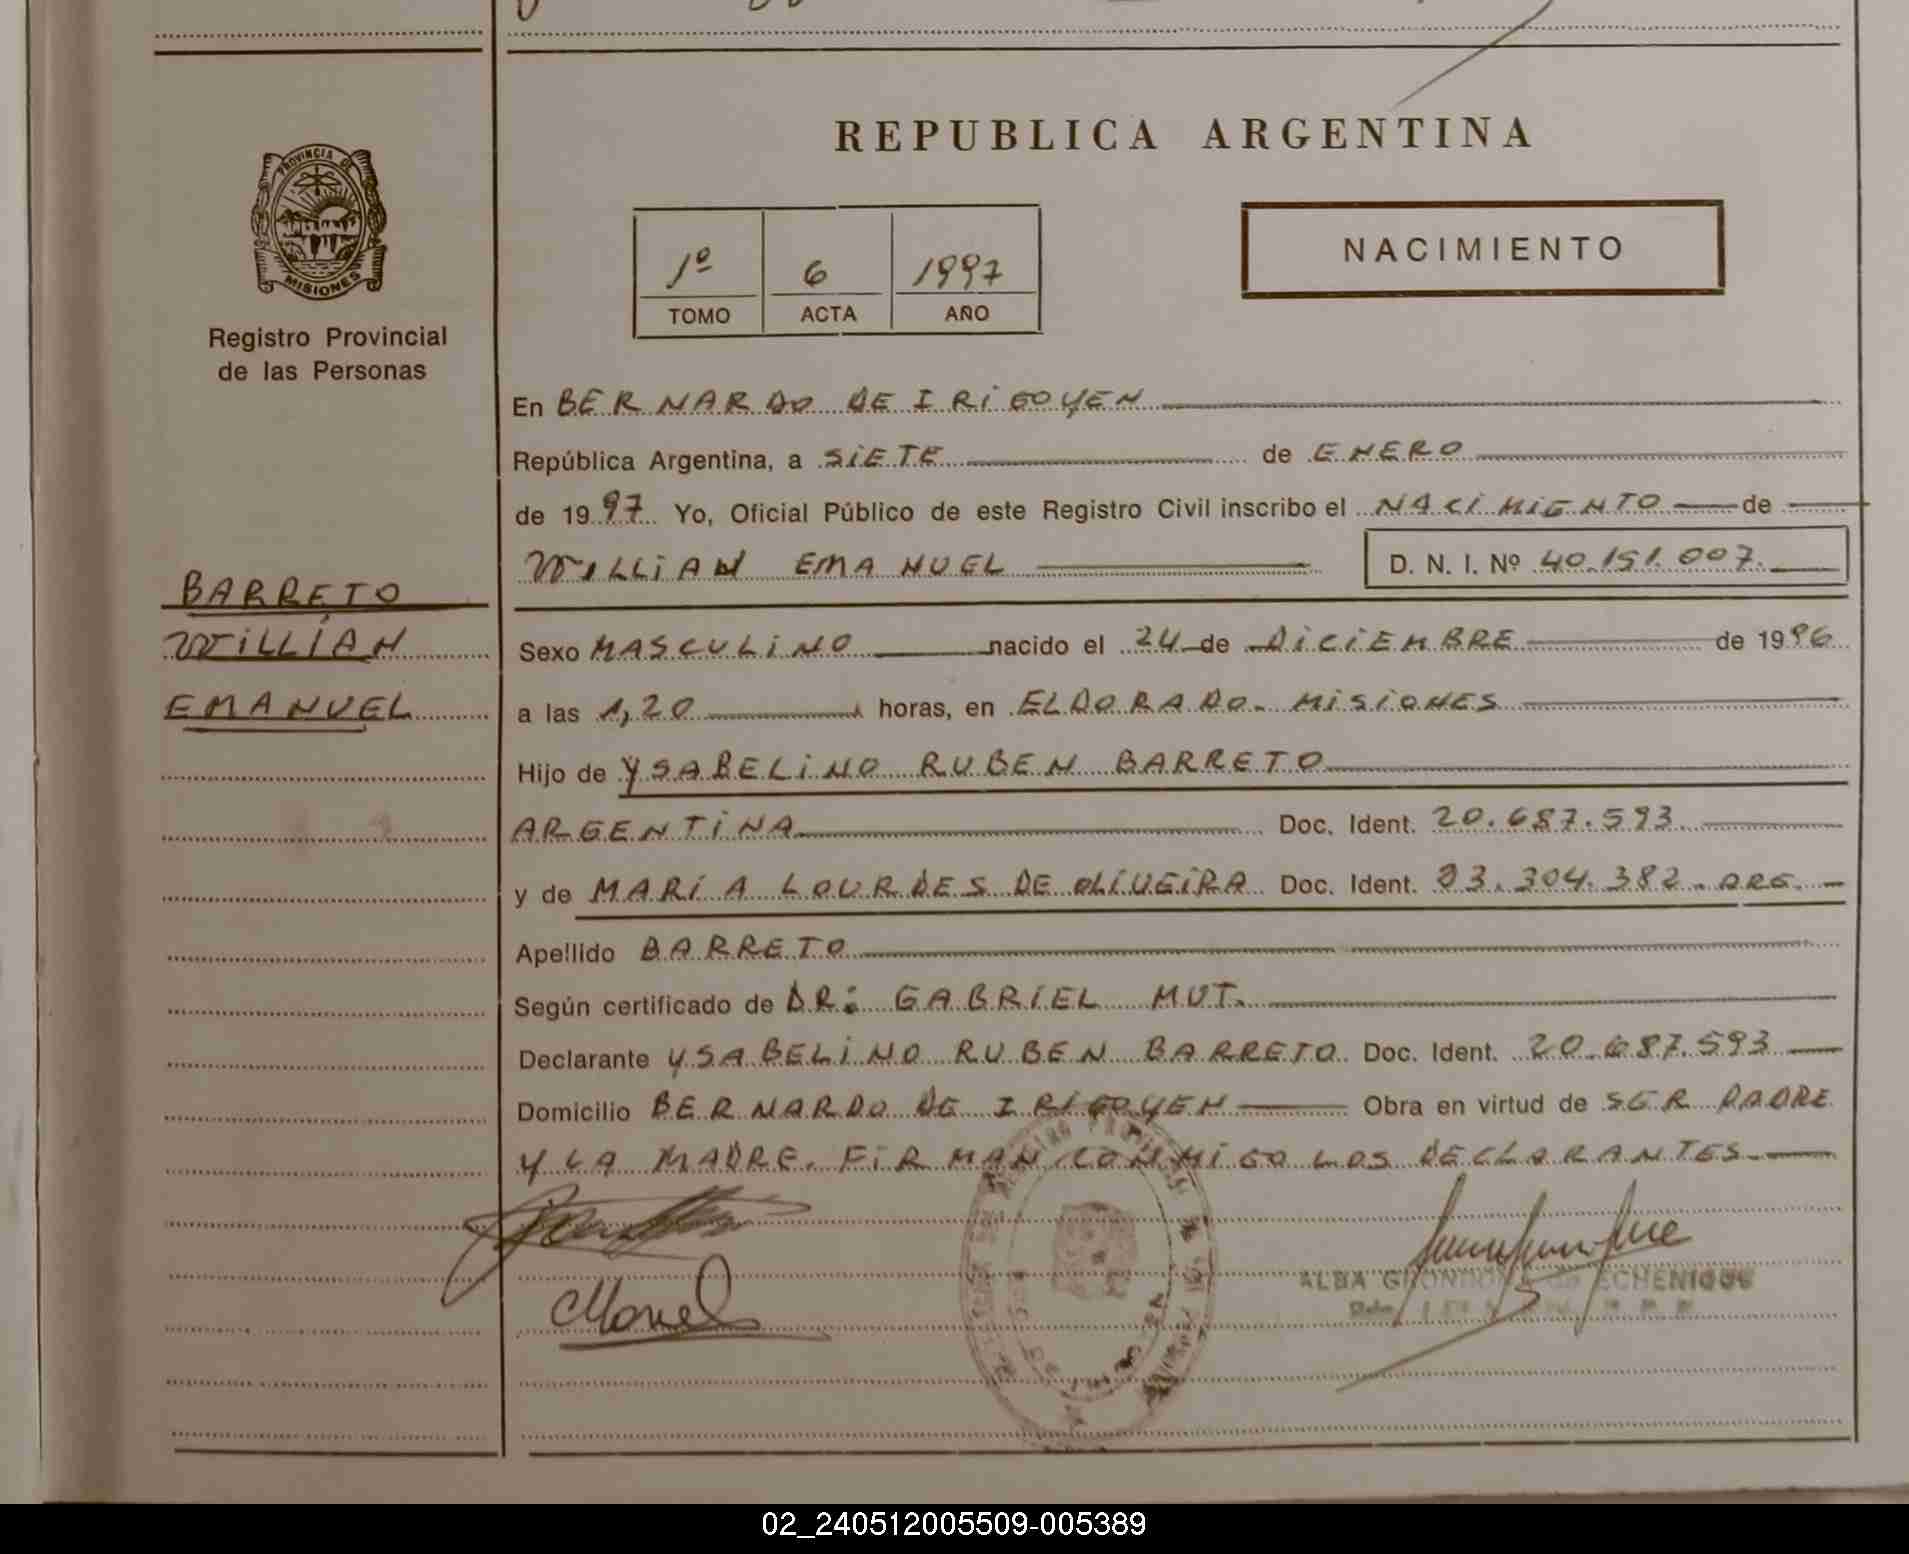 REPUBLICA ARGENTINA
PROVINCIA DE
MISIONES
Registro Provincial
de las Personas
1º 6 1997
TOMO ACTA AÑO
NACIMIENTO
En BERNARDO DE IRIGOYEN
República Argentina, a SIETE de ENERO
de 1997 Yo, Oficial Público de este Registro Civil inscribo el NACIMIENTO de
WILLIAN EMANUEL D. N. I. Nº 40.151.007.
BARRETO
WILLIAN
EMANUEL
Sexo MASCULINO nacido el 24 de DICIEMBRE de 1996
a las 1,20 horas, en ELDORADO. MISIONES
Hijo de YSABELINO RUBEN BARRETO
ARGENTINA Doc. Ident. 20.687.593.
y de MARIA LOURDES DE OLIVEIRA Doc. Ident. 93.304.382. ARG.
Apellido BARRETO
Según certificado de DR: GABRIEL MUT.
Declarante YSABELINO RUBEN BARRETO Doc. Ident. 20.687.593
Domicilio BERNARDO DE IRIGOYEN Obra en virtud de SER PADRE
Y LA MADRE. FIRMAN CONMIGO LOS DECLARANTES.
ALBA ECHENIQUE
02_240512005509-005389